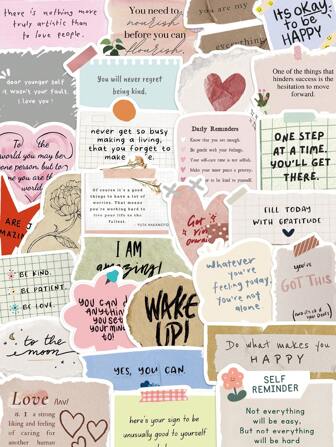 there is nothing more
truly artistic than
to love people.
You need to
nourish
before you can
flourish.
you are my
everything
It's okay
to be
HAPPY
dear younger self
it wasn't your fault.
i love you!
You will never regret
being kind.
One of the things that
hinders success is the
hesitation to move
forward.
never get so busy
making a living,
that you forget to
make
Daily Reminders
Know that you are enough.
Be gentle with your feelings.
ONE STEP
AT A TIME.
YOU'LL GET
THERE.
To the
world you may be
one person, but to
you are the
world.
Of course it's a good
things to have a lot of
worries. That means
you're working hard to
live your life to the
fullest.
ARE
I AM
amazing!
FILL TODAY
WITH GRATITUDE
BE KIND.
BE PATIENT.
BE LOVE.
you can do
anything
you set
your mind
to!
WAKE
UP!
whatever
you're
feeling today,
you're not
alone
you've
GOT THIS
to the
moon
YES, YOU CAN.
Do what makes you
HAPPY
Love /lʌv/
n. 1 a strong
liking and feeling
of caring for
another human
here's your sign to be
unusually good to yourself
SELF
REMINDER
Not everything
will be easy,
But not everything
will be hard